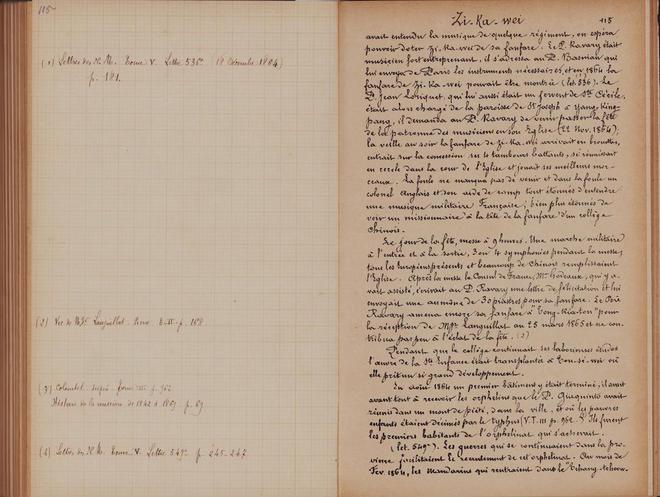 115
(1) Lettres des N.M. Tome V. Lettre 536e (18 Décembre 1864)
p. 181.
(2) Vie de Mgr Languillat. Tome II. p.
(3) Colombel. p. 962
Histoire de la mission de 1842 à p. 69
(4) Lettres des N.M. Tome V. Lettre 549e p. 245-247
Zi-Ka-wei 115
avait entendu la musique de quelque régiment, on espéra
pouvoir doter Zi-Ka-wei de sa fanfare. Le P. Ravary était
musicien fort entreprenant, il s'adressa au P. Basuiau qui
lui envoya de Paris les instruments nécessaires, et en 1864 la
fanfare de Zi-Ka-wei pouvait être montrée (let. 536). Le
P. Jean Louiguet, qui lui aussi était un fervent de Ste Cécile,
était alors chargé de la paroisse de St Joseph à Yang-King-
pang, il demanda au P. Ravary de venir passer la fête
de la patronne des musiciens en son Eglise (22 Nov. 1864);
la veille au soir la fanfare de Zi-Ka-wei arrivait en brouettes,
entrait sur la concession ses 4 tambours battants, se réunissait
en cercle dans la cour de l'Eglise et jouait ses meilleurs mor-
ceaux. La foule ne manqua pas de venir et dans la foule un
colonel Anglais et son aide de camp tout étonnés d'entendre
une musique militaire Française; bien plus étonnés de
voir un missionnaire à la tête de la fanfare d'un collège
Chinois.
Le jour de la fête, messe à 9 heures. Une marche militaire
à l'entrée et à la sortie, 3 ou 4 symphonies pendant la messe,
tous les Européens présents et beaucoup de Chinois remplissaient
l'Eglise. Après la messe le Consul de France, Mr Godeaux, qui y a-
vait assisté, écrivait au P. Ravary une lettre de félicitation et lui
envoyait une aumône de 30 piastres pour sa fanfare. Le Père
Ravary amena encore sa fanfare à "Tong-Kia-tou" pour
la réception de Mgr Languillat au 25 mars 1865 et ne con-
tribua pas peu à l'éclat de la fête. (2)
Pendant que le collège continuait ses laborieuses études
l'œuvre de la Ste Enfance était transplantée à Tou-sè-wè où
elle prit un si grand développement.
En août 1864 un premier bâtiment y était terminé, il avait
avant tout à recevoir les orphelins que le P. avait
réunis dans un mont de piété, dans la ville, et où les pauvres
enfants étaient décimés par le typhus (V.T. III p. 962. 3) Ils furent
les premiers habitants de l'orphelinat qui s'achevait
(let. 549e). Les guerres qui se continuaient dans la pro-
vince facilitaient le recrutement de cet orphelinat. Au mois de
Fév. 1864, les mandarins qui rentraient dans le "Tchang-tcheou.